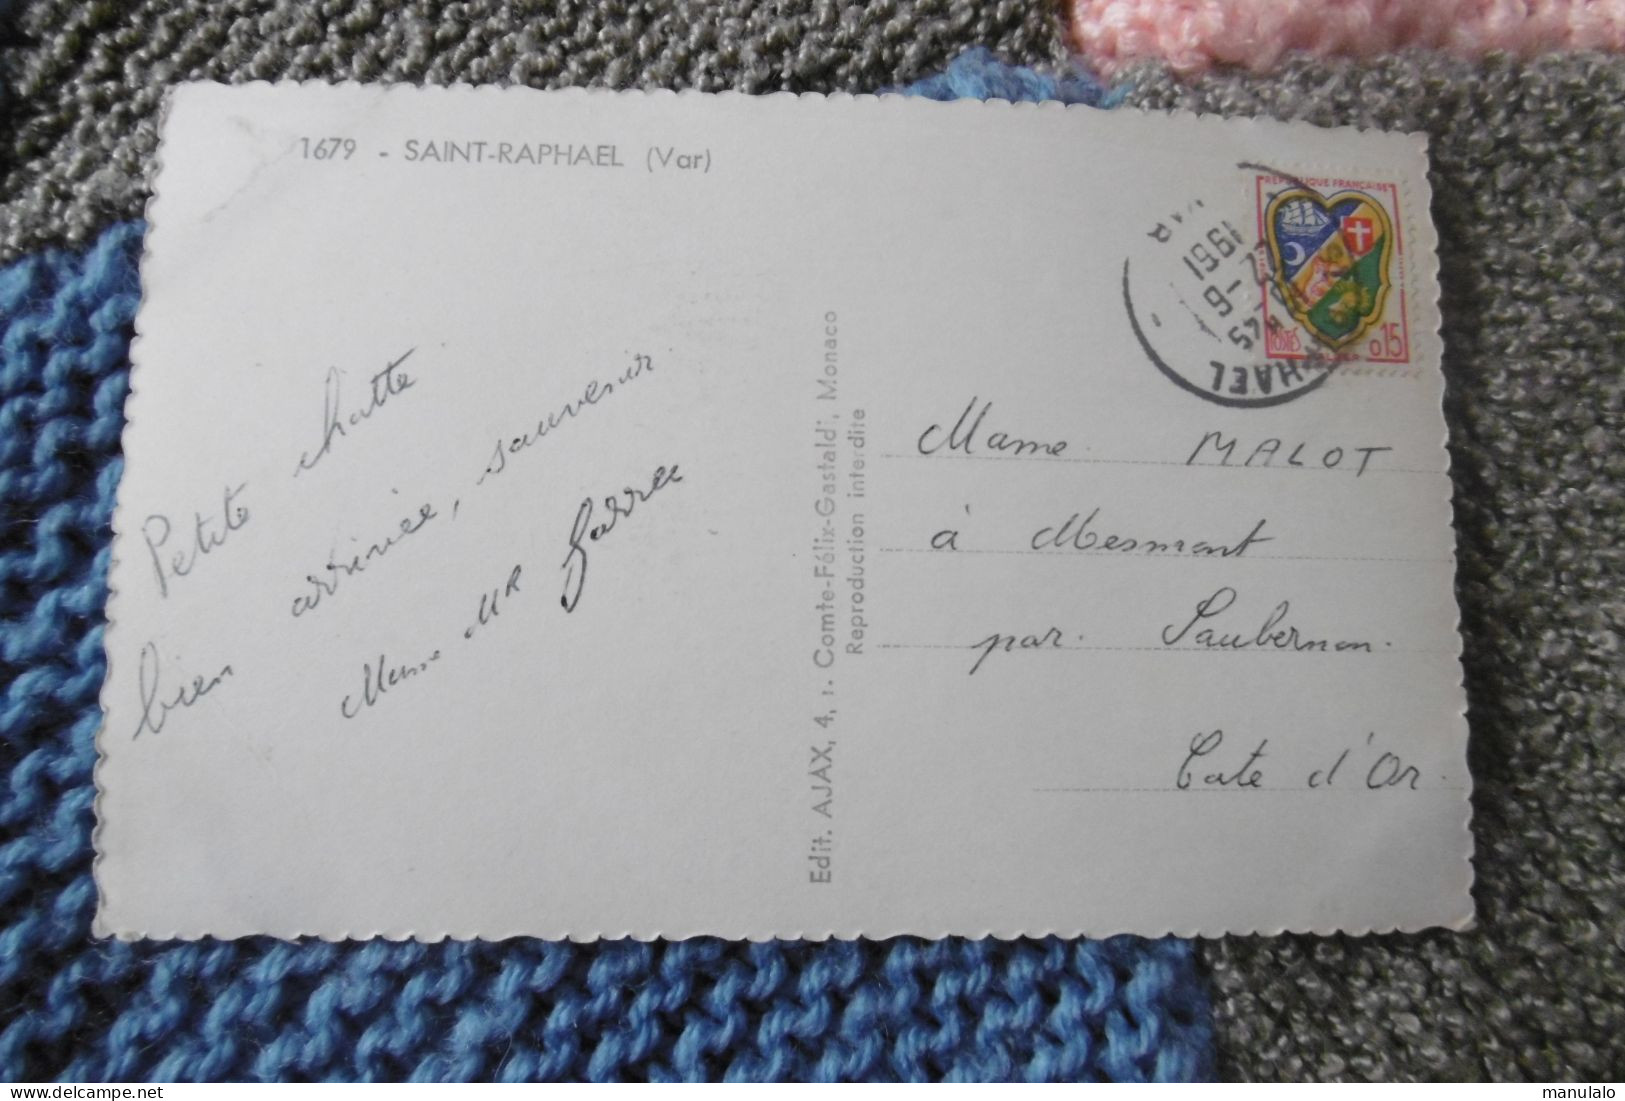 1679 - SAINT-RAPHAEL (Var)
Petite chatte
bien arrivée, souvenir.
Mame MR
Edit. AJAX, 4, r. Comte-Félix-Gastaldi, Monaco
Reproduction interdite
VAR
1961
45
HAEL
REPUBLIQUE FRANÇAISE
POSTES
ALGER
0,15
Mame. MALOT
à Mesmont
par. Saubernon.
Cote d'Or.
delcampe.net
manulalo